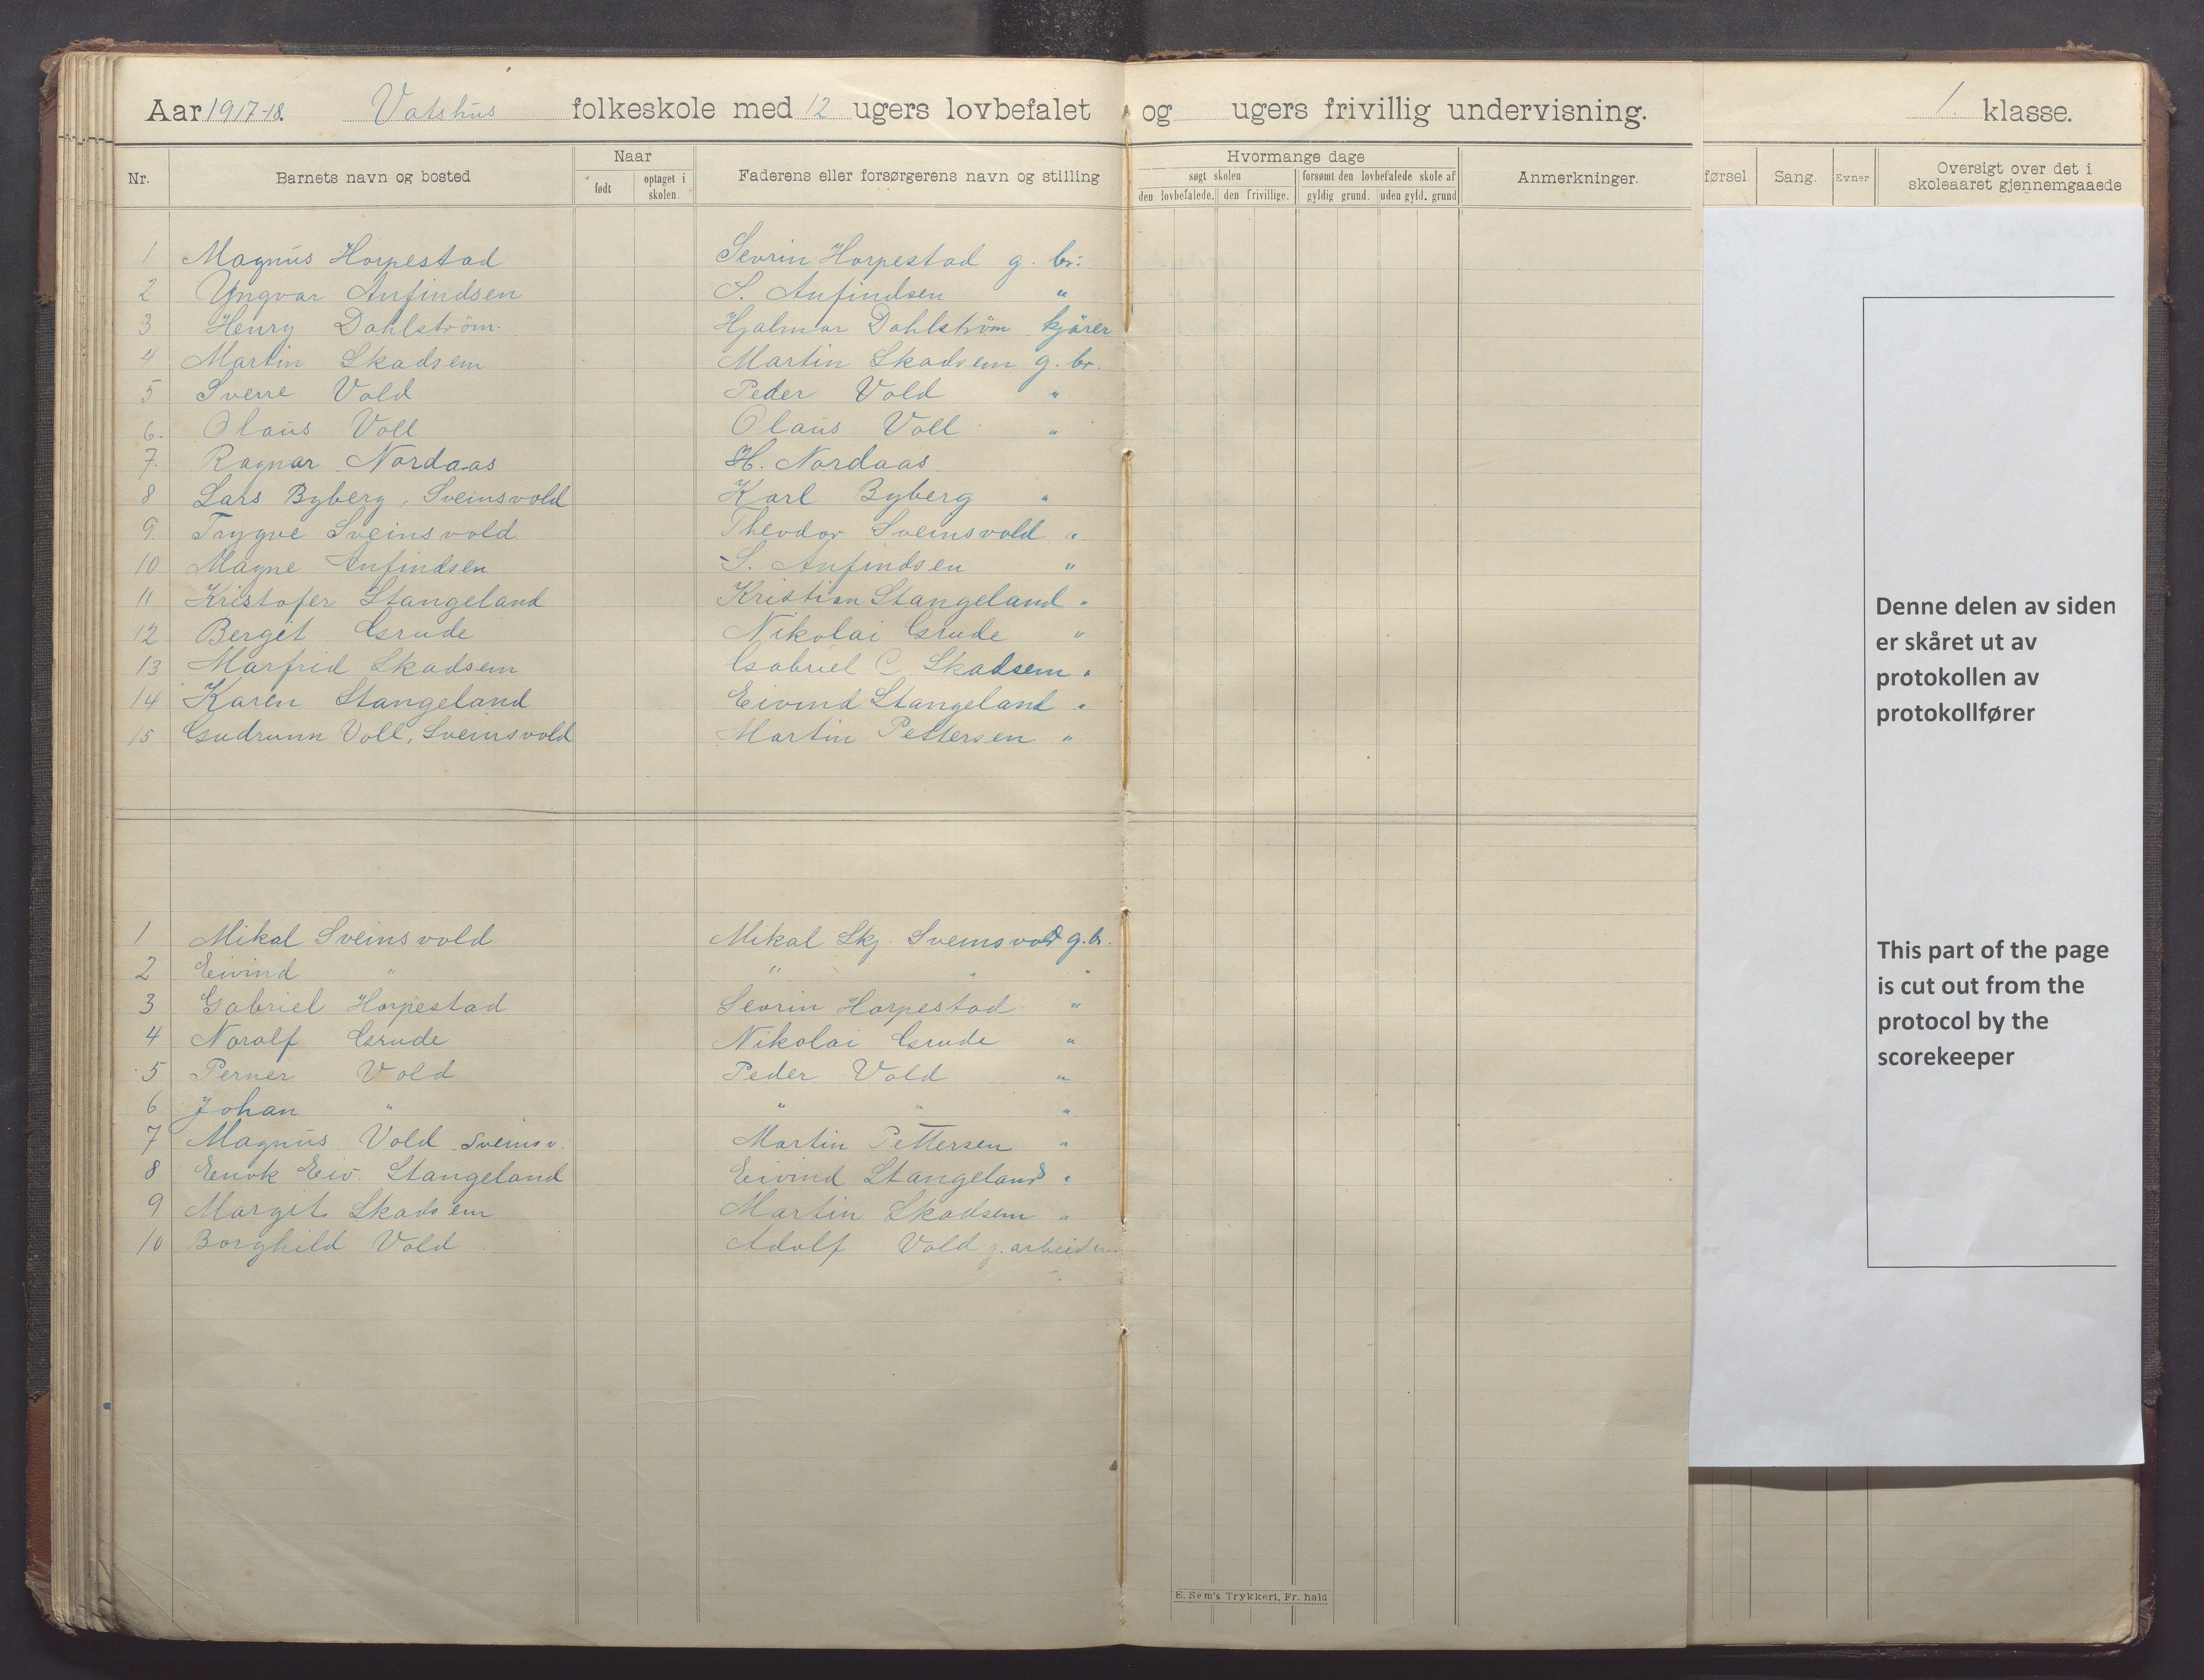 Aar 1917-18. Vatshus folkeskole med 12 ugers lovbefalet og ugers frivillig undervisning. 1. klasse.
Nr. Barnets navn og bosted Naar født optaget i skolen. Faderens eller forsørgerens navn og stilling Hvormange dage søgt skolen den lovbefalede. den frivillige. forsømt den lovbefalede skole af gyldig grund. uden gyld. grund Anmerkninger. førsel. Sang. Evner Oversigt over det i skoleaaret gjennemgaaede
1 Magnus Horpestad Sevrin Horpestad g. br:
2 Yngvar Anfindsen S. Anfindsen "
3 Henry Dahlström. Hjalmar Dahlström kjörer
4 Martin Skadsem Martin Skadsem g. br.
5 Sverre Vold Peder Vold "
6. Olaus Voll Olaus Voll "
7. Ragnar Nordaas H. Nordaas
8 Lars Byberg, Sveinsvold Karl Byberg "
9. Trygve Sveinsvold Theodor Sveinsvold "
10 Magne Anfindsen S. Anfindsen "
11 Kristofer Stangeland Kristian Stangeland "
12 Berget Grude Nikolai Grude "
13 Marfrid Skadsem Gabriel C. Skadsem "
14 Karen Stangeland Eivind Stangeland "
15 Gudrunn Voll, Sveinsvold Martin Pettersen "
1 Mikal Sveinsvold Mikal Skj. Sveinsvold g. br.
2 Eivind " " " "
3 Gabriel Horpestad Sevrin Horpestad "
4 Noralf Grude Nikolai Grude "
5 Perner Vold Peder Vold "
6 Johan " " " "
7 Magnus Vold Sveinsv. Martin Pettersen "
8 Enok Eiv. Stangeland Eivind Stangeland "
9 Margit Skadsem Martin Skadsem "
10 Borghild Vold Adolf Vold g. arbeider
Denne delen av siden
er skåret ut av
protokollen av
protokollfører
This part of the page
is cut out from the
protocol by the
scorekeeper
E. Sem's Trykkeri, Fr. hald